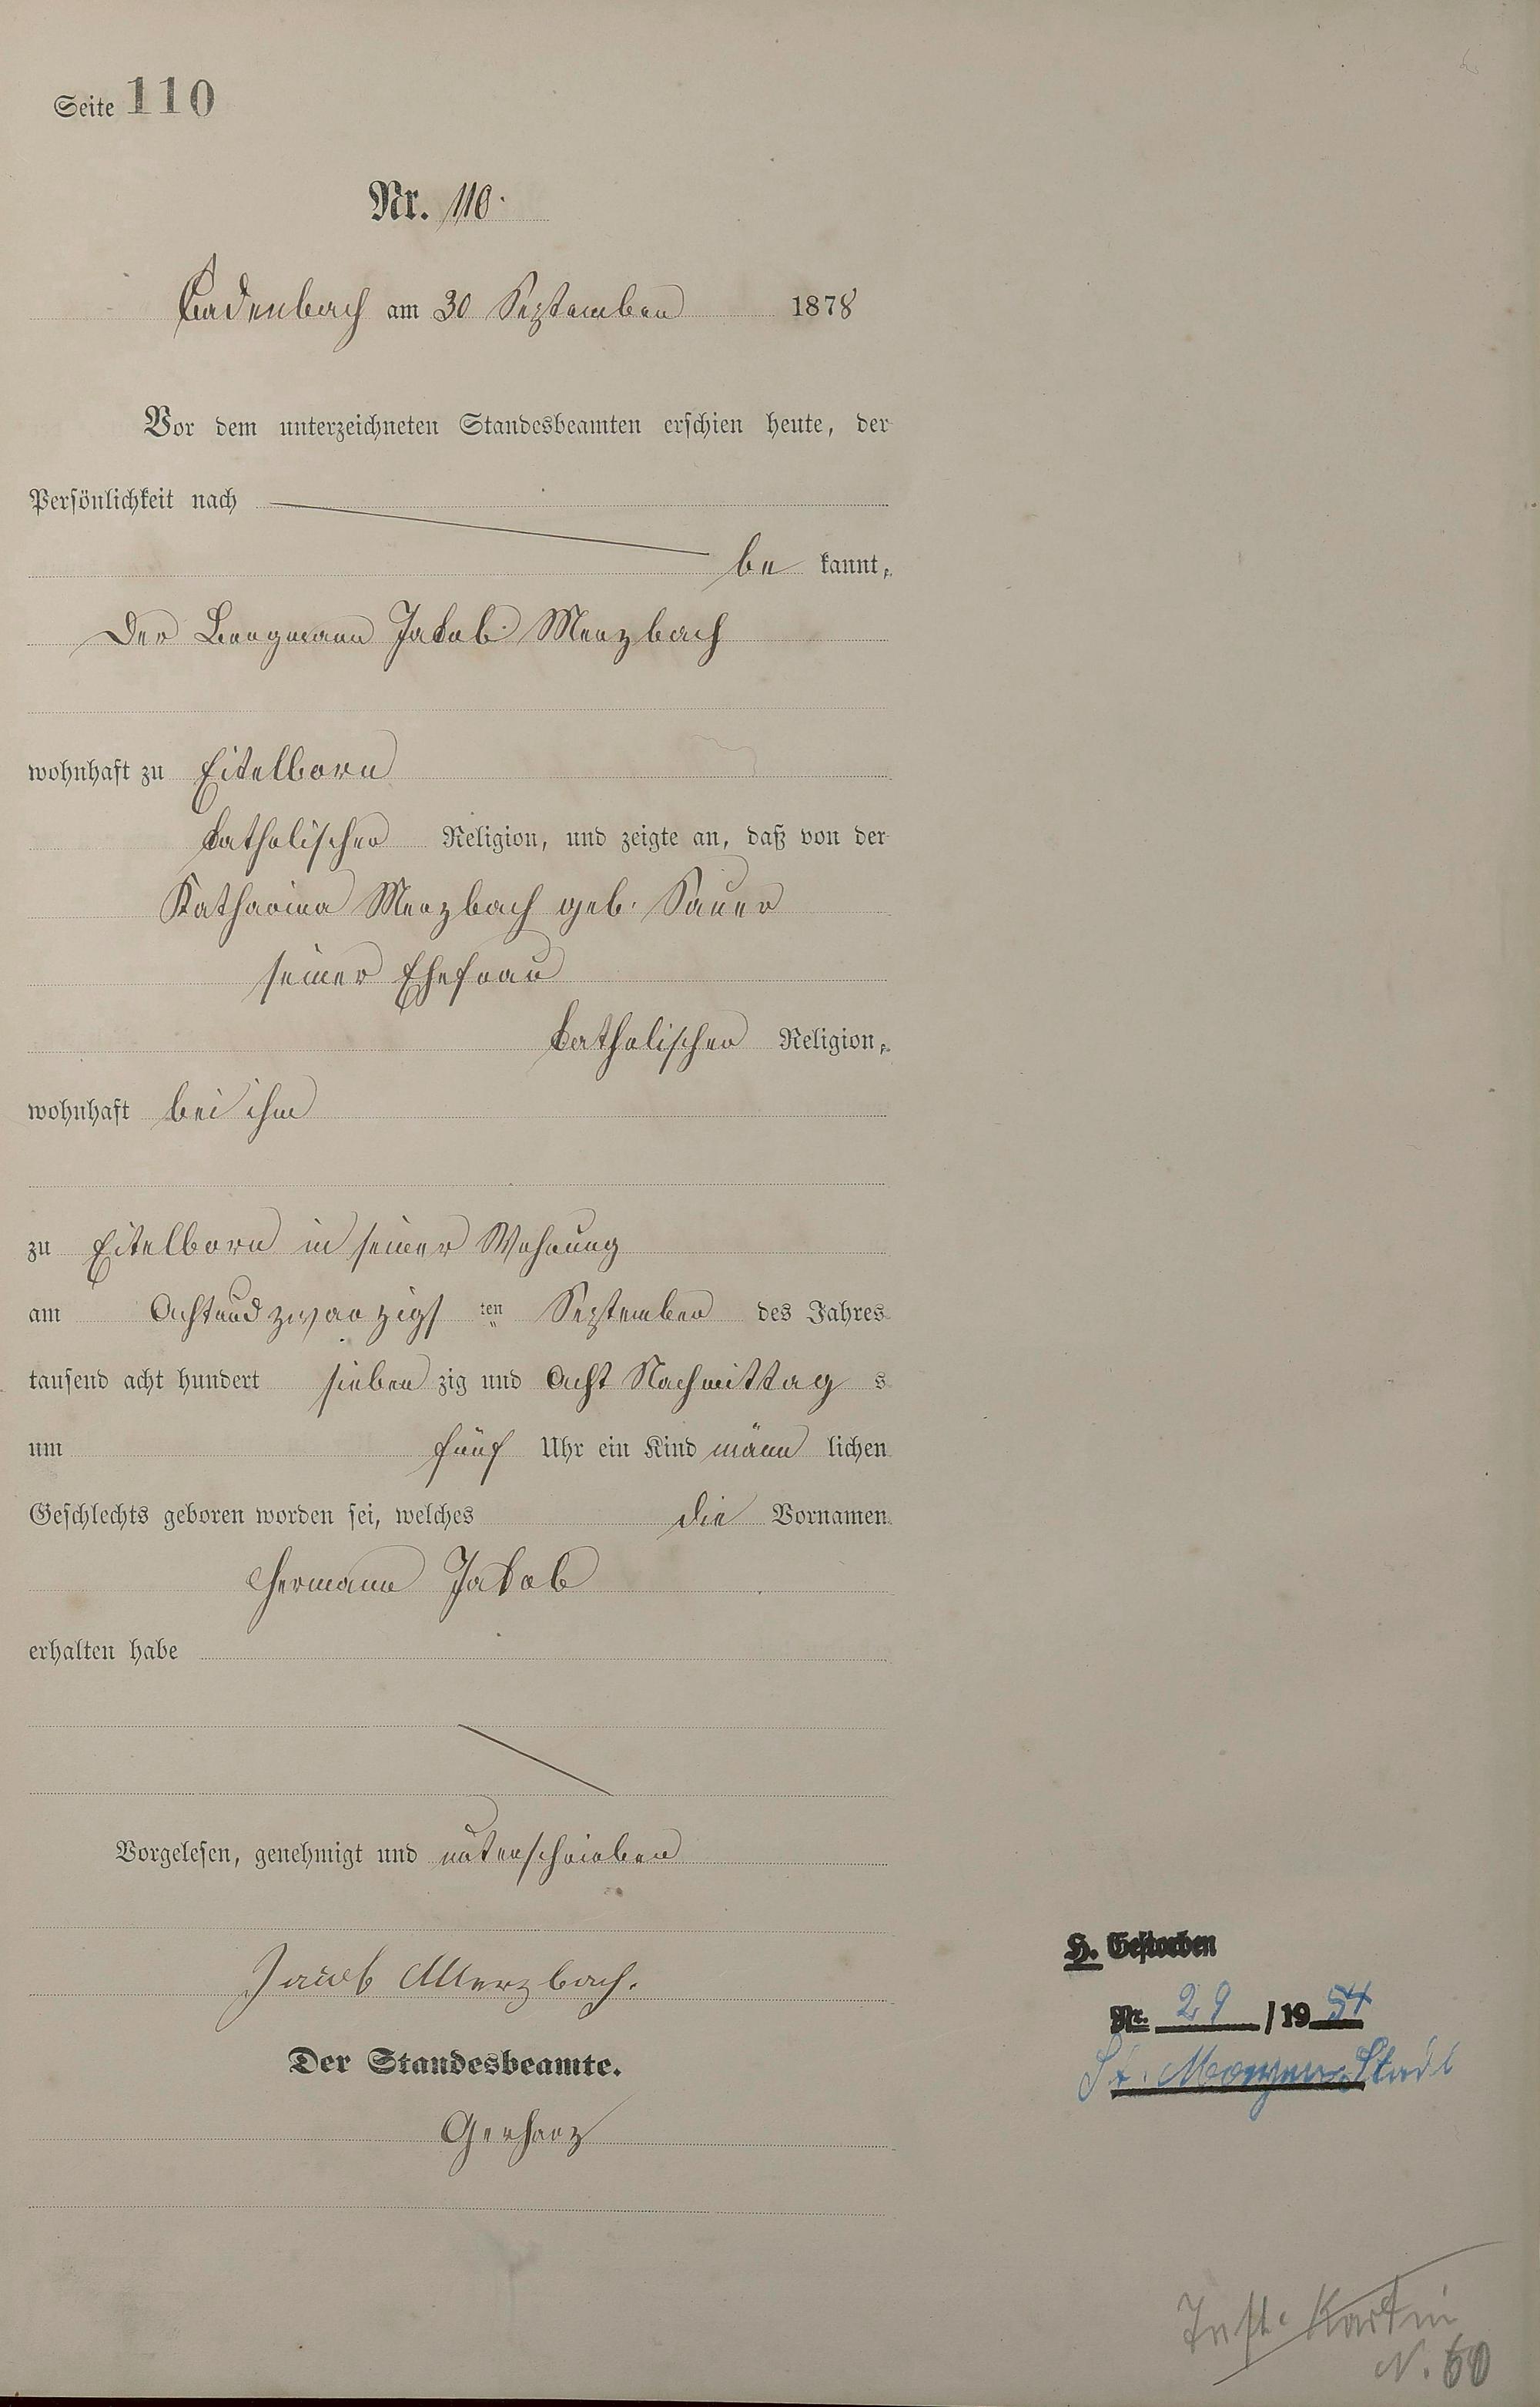 Seite 110
Nr. 110.
Cadenbach am 30 September 1878
Vor dem unterzeichneten Standesbeamten erschien heute, der
Persönlichkeit nach
be kannt,
Der Bergmann Jakob Merzbach
wohnhaft zu Eitelborn
katholischer Religion, und zeigte an, daß von der
Katharina Merzbach geb. Sauer
seiner Ehefrau
katholischer Religion,
wohnhaft bei ihm
zu Eitelborn in seiner Wohnung
am Achtundzwanzigs ten September des Jahres
tausend acht hundert sieben zig und Acht Nachmittag s
um fünf Uhr ein Kind männ lichen
Geschlechts geboren worden sei, welches die Vornamen
Hermann Jakob
erhalten habe
Vorgelesen, genehmigt und unterschrieben
Jacob Merzbach.
Der Standesbeamte.
Gerharz
H. Gestorben
Nr. 29 / 19 54
St.
N. 60